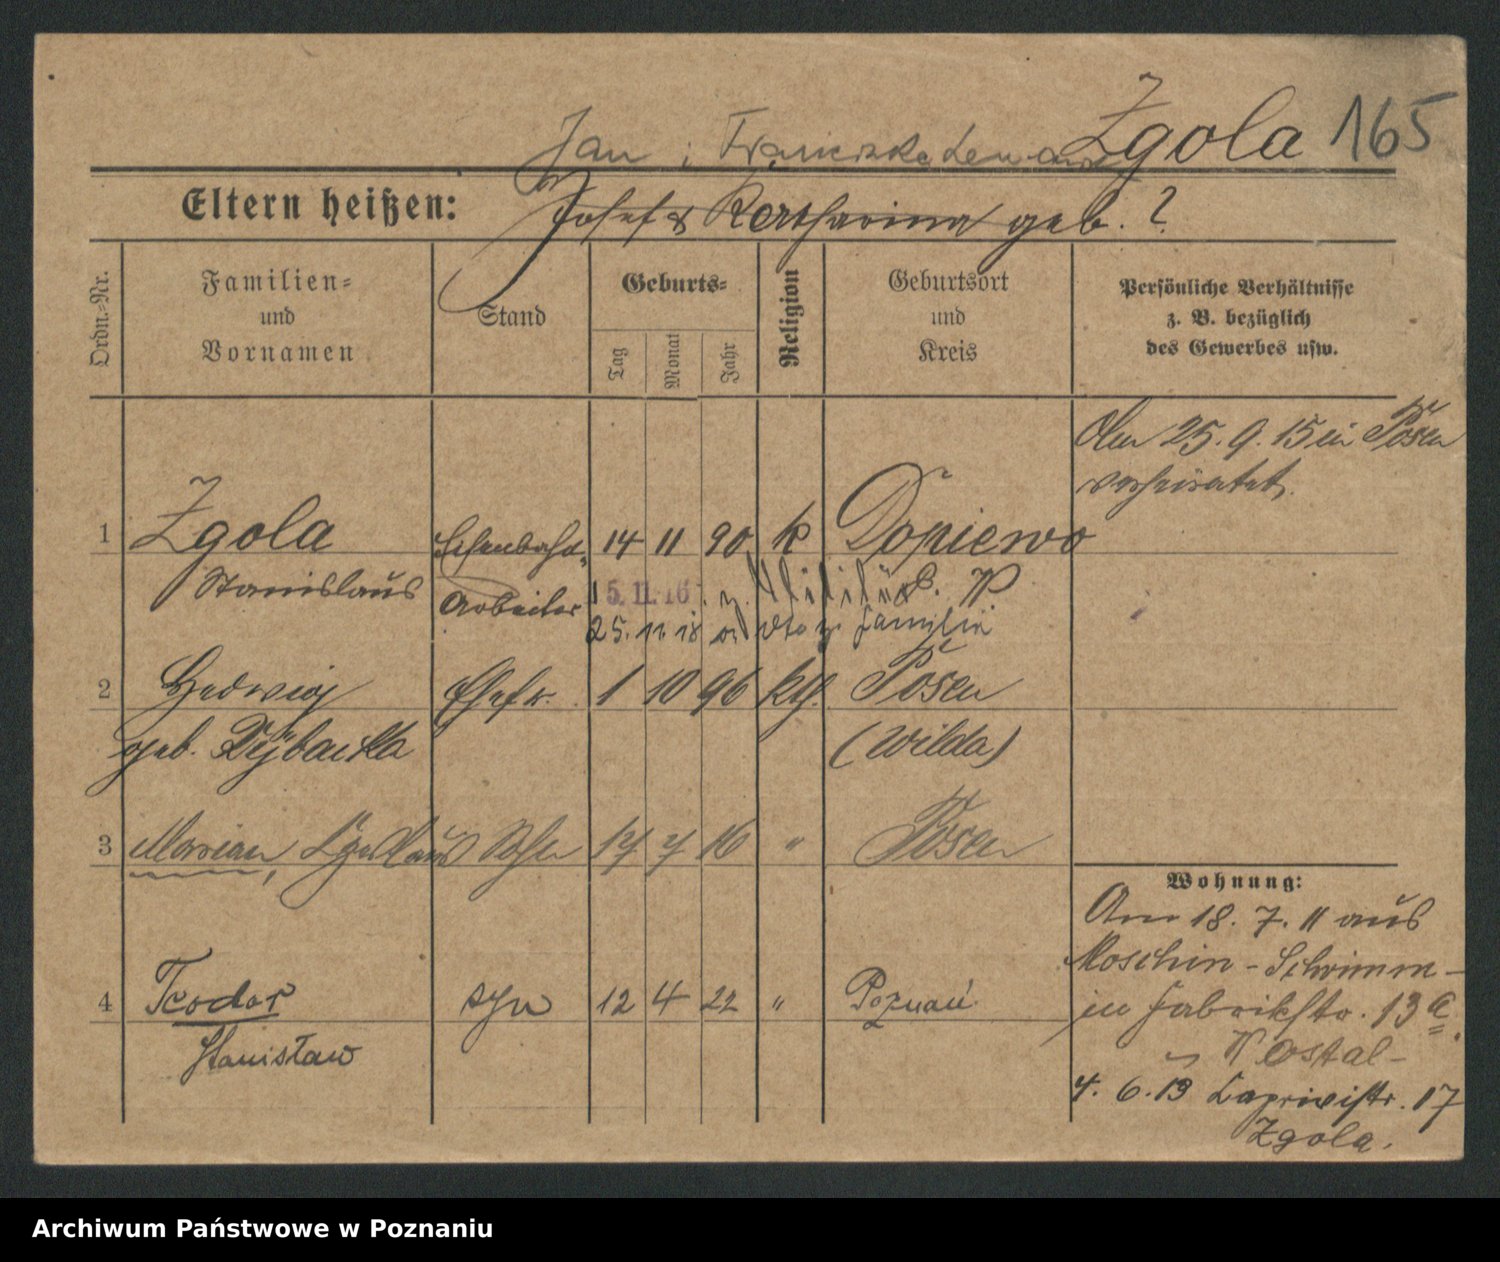 Zgola 165
Jan i Franciszka
Eltern heißen: Josef & Katharina geb. ?
Ordn.-Nr.
Familien-
und
Vornamen
Stand
Geburts-
Tag
Monat
Jahr
Religion
Geburtsort
und
Kreis
Persönliche Verhältnisse
z. B. bezüglich
des Gewerbes usw.
Am 25. 9. 15 in Posen
verheiratet.
1 Zgola Eisenbahn- 14 11 90 k Dopiewo
Stanislaus Arbeiter 15.11.16 z. Militär
25. 11. 18 Familie
2 Hedwig Ehefr. 1 10 96 kth. Posen
geb. (Wilda)
3 Marian, Sohn 17 7 16 " Posen
4 Teodor syn 12 4 22 " Poznań
Stanisław
Wohnung:
Am 18. 7. 11 aus
Moschin - Schrimm -
in Fabrikstr. 13a
4. 6. 13 Caprivistr. 17
Zgola.
Archiwum Państwowe w Poznaniu